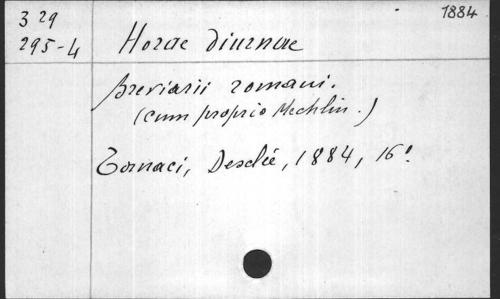 329
1884
295-4
Horae diurnae
breviarii romani.
(cum proprio Mechlin.)
Tornaci, Desclée, 1884, 16°